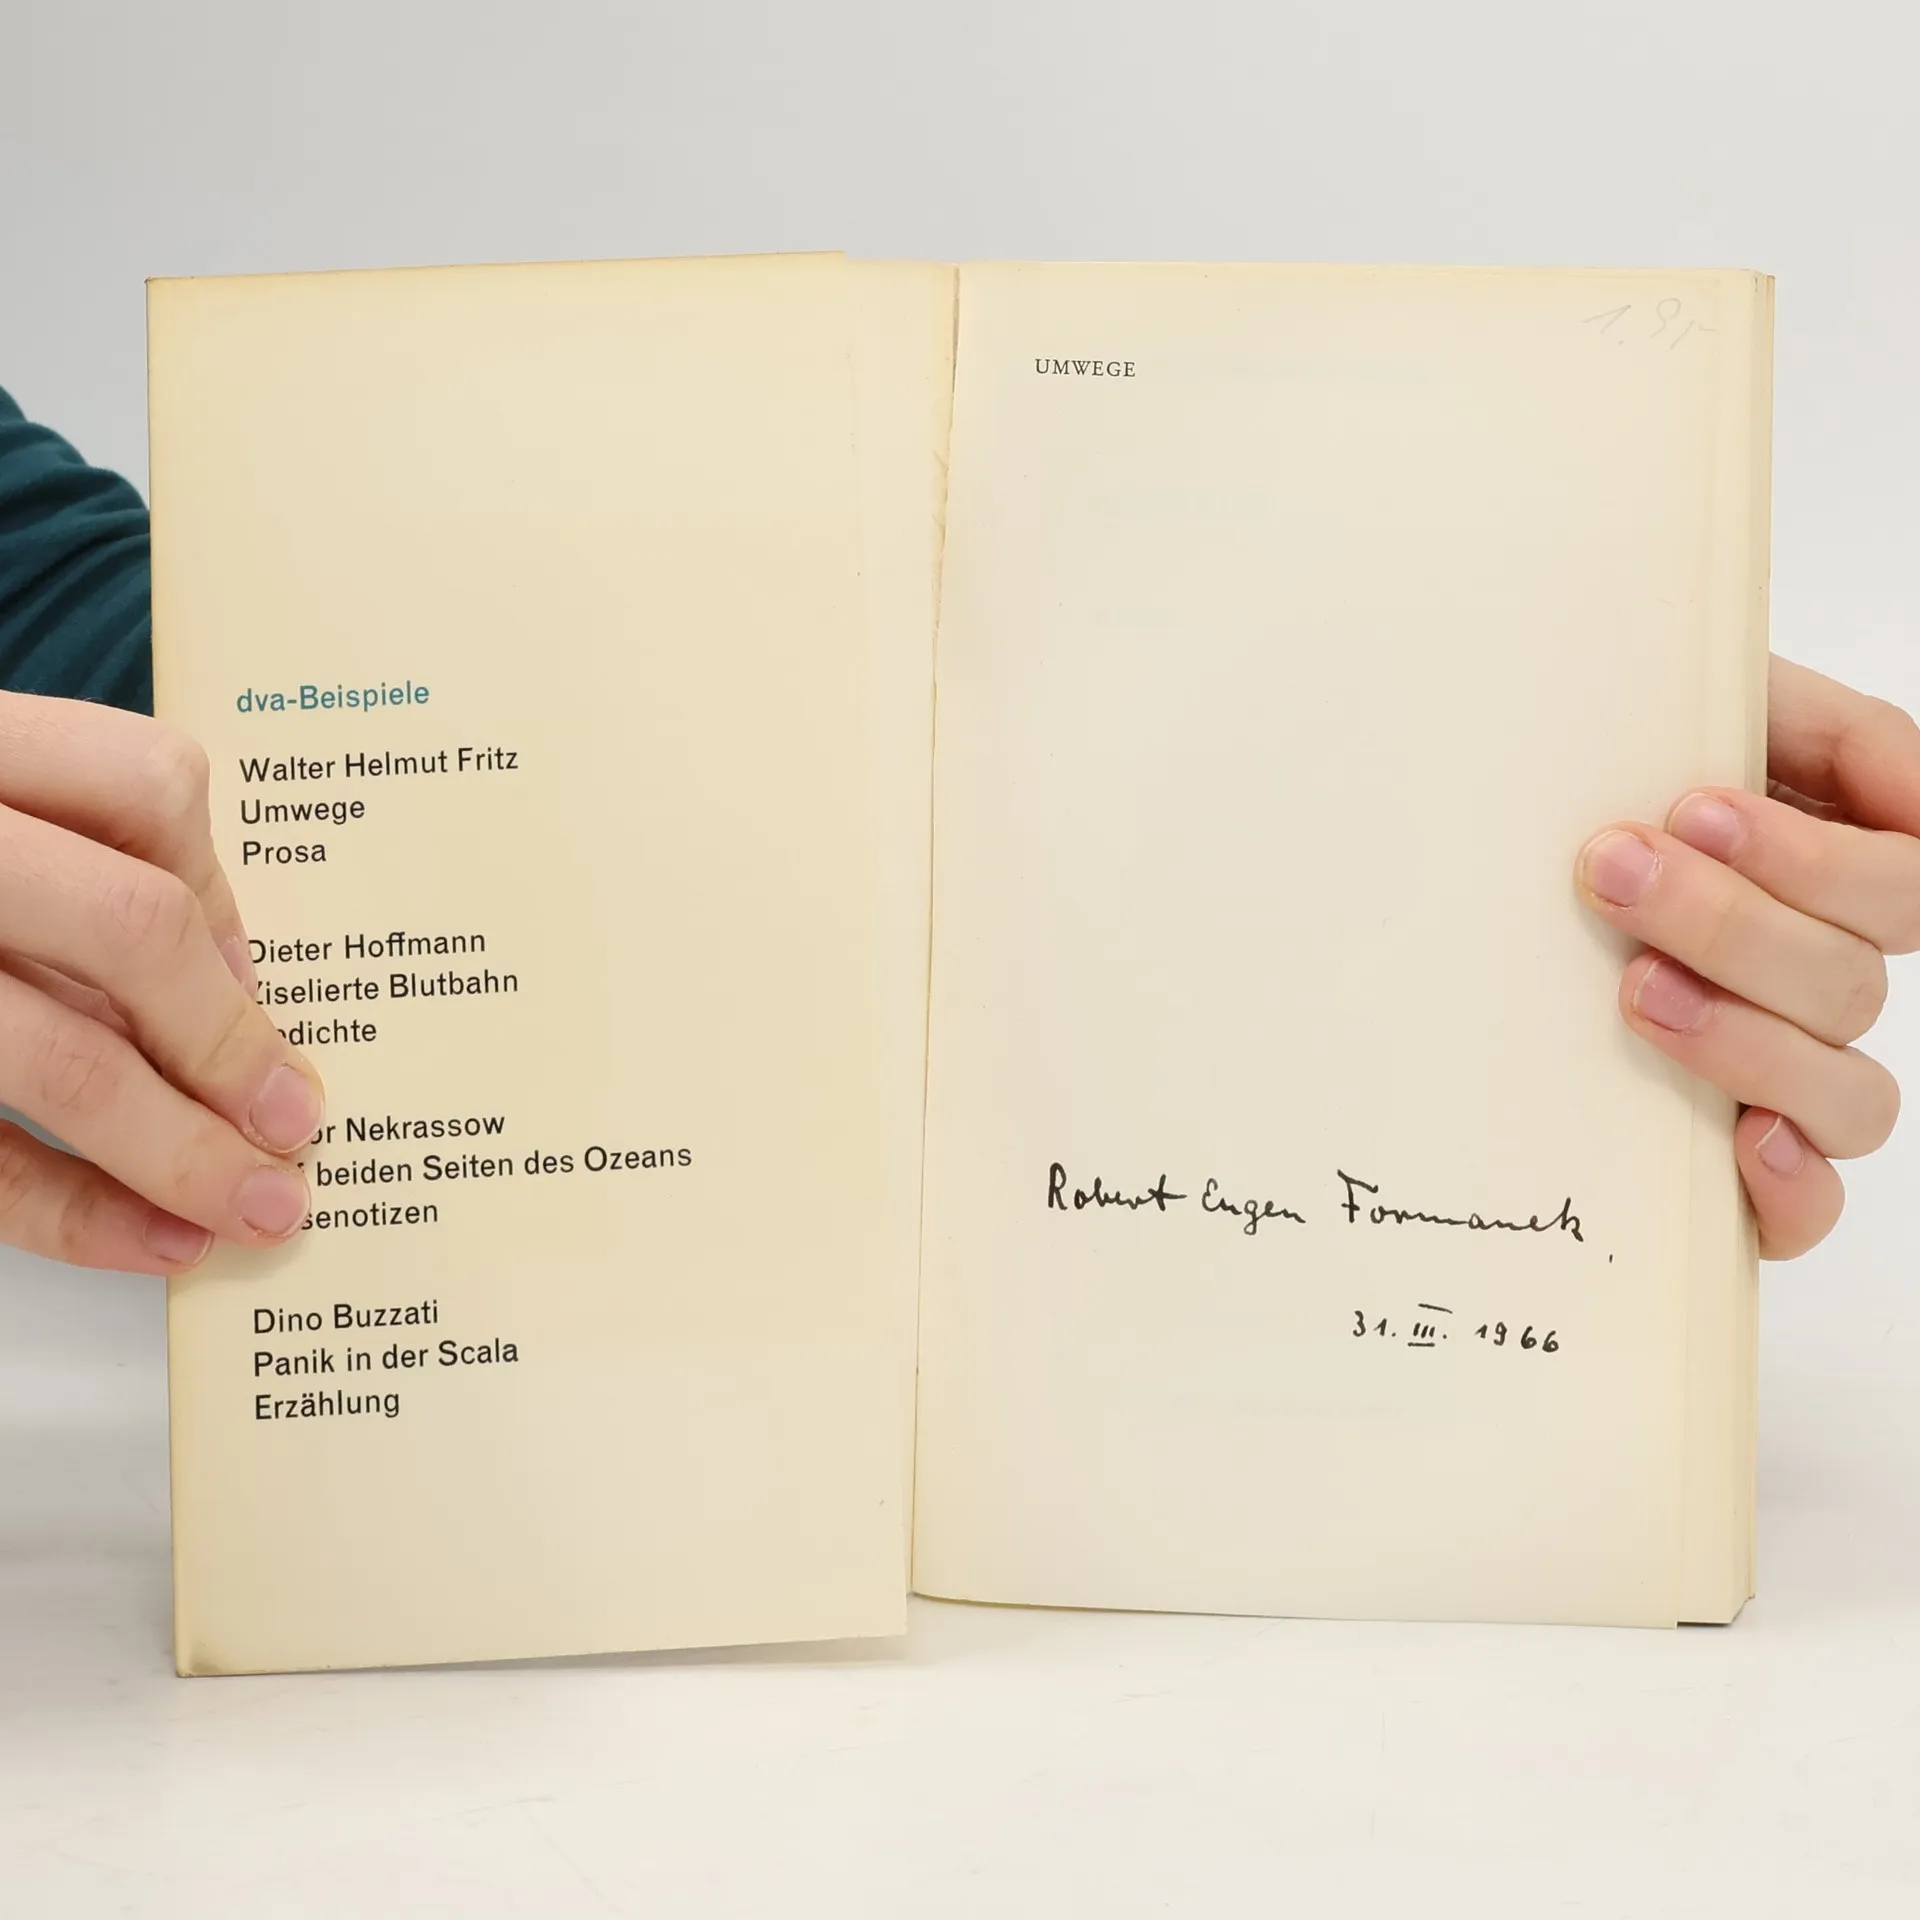 dva-Beispiele
Walter Helmut Fritz
Umwege
Prosa
Dieter Hoffmann
Ziselierte Blutbahn
dichte
or Nekrassow
beiden Seiten des Ozeans
senotizen
Dino Buzzati
Panik in der Scala
Erzählung
UMWEGE
Robert Eugen Formanek,
31. III. 1966